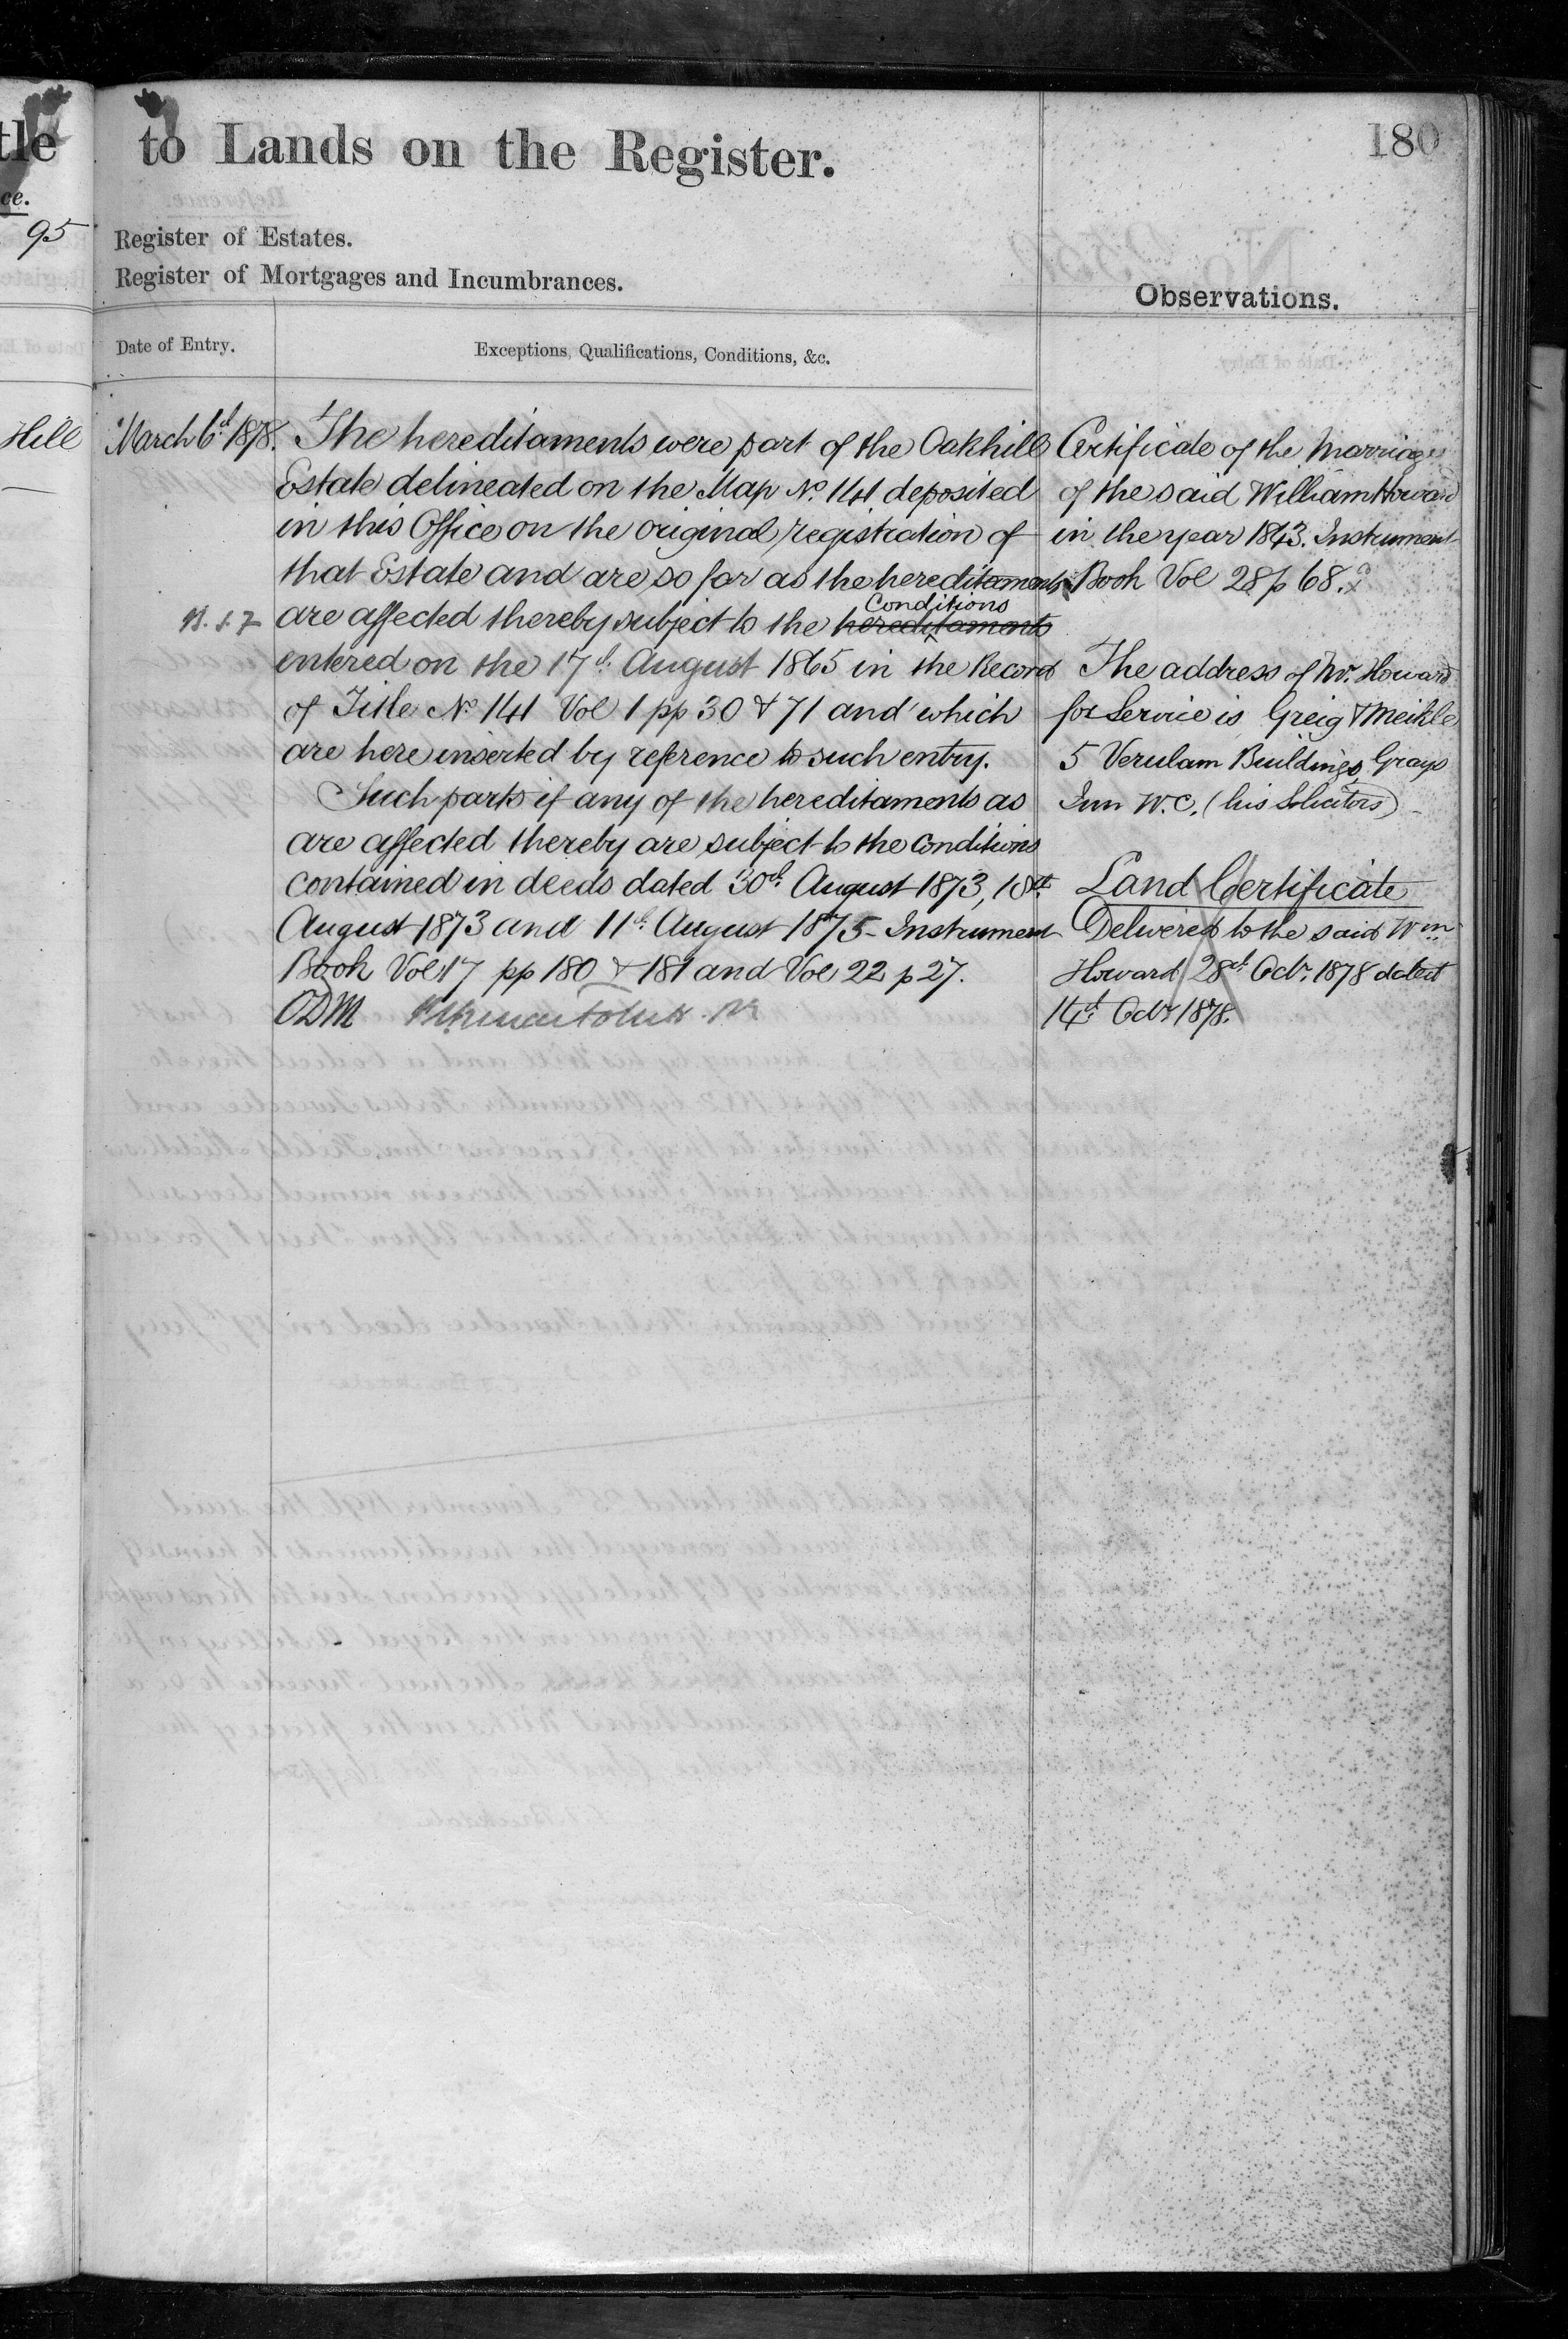 tle
ce.
95
Hill
to Lands on the Register.
180
Register of Estates.
Register of Mortgages and Incumbrances.
Observations.
Date of Entry.
Exceptions, Qualifications, Conditions, &c.
March 6th 1878.
The hereditaments were part of the Oakhill
Estate delineated on the Map No. 141 deposited
in this Office on the original registration of
that Estate and are so far as the hereditaments
are affected thereby subject to the hereditaments Conditions
entered on the 17th August 1865 in the Record
of Title No 141 Vol 1 pp 30 & 71 and which
are here inserted by reference to such entry.
Such parts if any of the hereditaments as
are affected thereby are subject to the conditions
contained in deeds dated 30th August 1873, 18th
August 1873 and 11th August 1875 - Instrument
Book Vol 17 pp 180 & 181 and Vol 22 p 27.
ODM
Certificate of the Marriage
of the said William Howard
in the year 1843. Instrument
Book Vol 28 p 68.
The address of Mr. Howard
for Service is Greig & Meikle
5 Verulam Buildings, Grays
Inn W.C. (his Solicitors)
Land Certificate
Delivered to the said Wm
Howard 28th Octr. 1878 dated
14th Octr 1878.